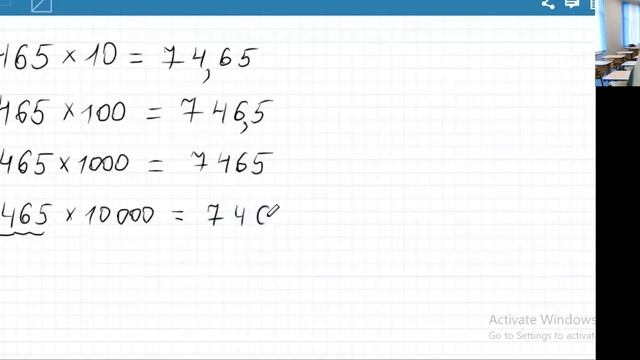 465 × 10 = 74,65
465 × 100 = 746,5
465 × 1000 = 7465
465 × 10 000 = 74
Activate Windows
Go to Settings to activat